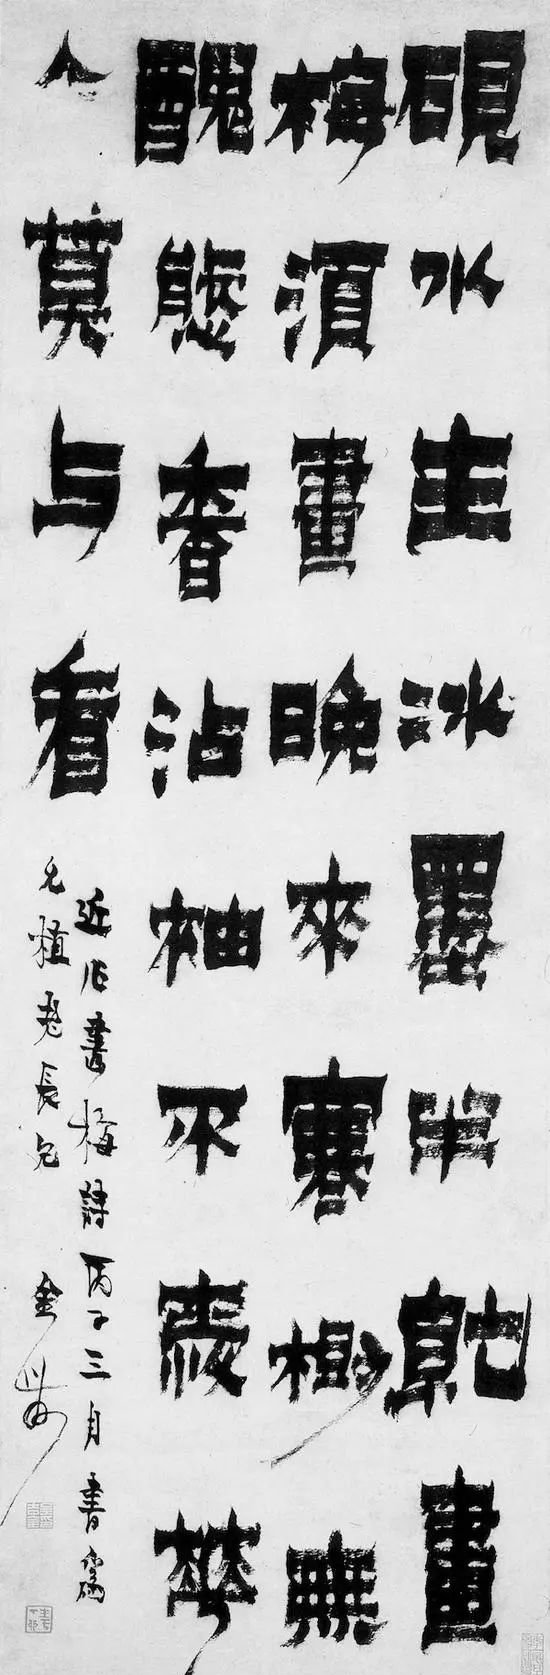 硯水生冰墨半乾畫
梅須畫晚來寒樹無
醜態香沾袖不愛華
人莫与看
近作畫梅詩丙子三月書
植老長兄 金農